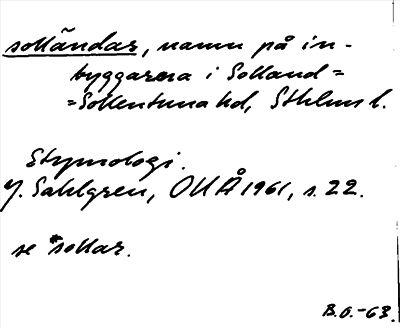 solländar, namn på in-
byggarna i Solland =
= Sollentuna hd, Sthlms l.
Etymologi.
J. Sahlgren, OUÅ 1961, s. 22.
se *sollar.
B.O.-63.